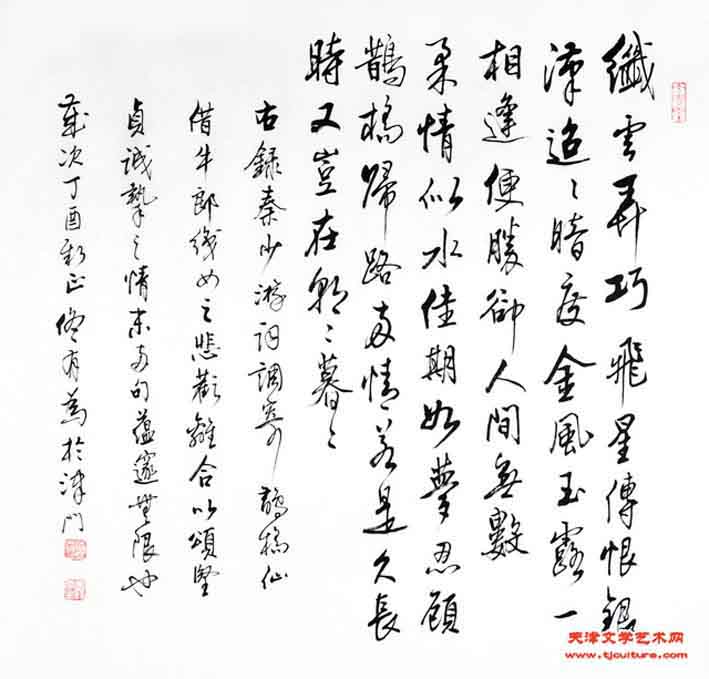 纖雲弄巧飛星傳恨銀
漢迢〻暗度金風玉露一
相逢便勝卻人間無數
柔情似水佳期如夢忍顧
鵲橋歸路兩情若是久長
時又豈在朝〻暮〻
右錄秦少游詞調寄鵲橋仙
借牛郎織女之悲歡離合以頌堅
貞誠摯之情末兩句蘊邃無限也
歲次丁酉新正佟有為於津門
天津文学艺术网
www.tjculture.com